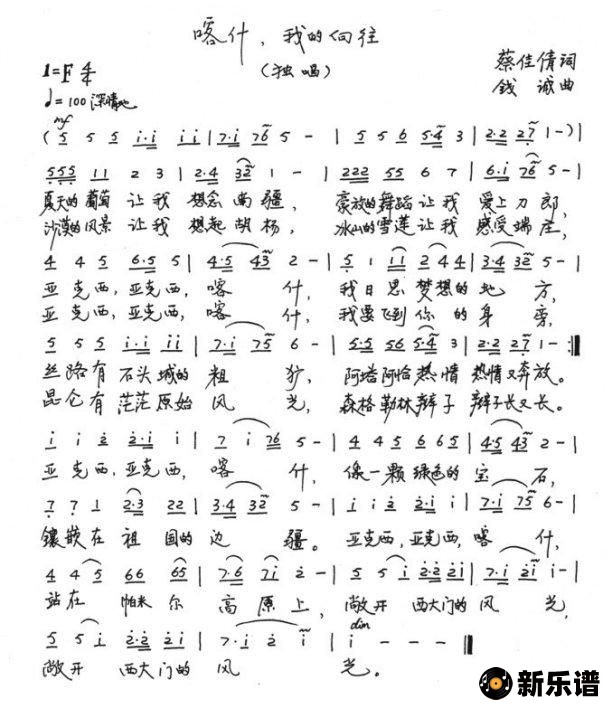 喀什,我的向往
(独唱)
蔡佳倩词
钱诚曲
1=F 4/4
♩=100 深情地
mf
(5 5 5 i·i i i | 7·i 76 5 - | 5 5 6 5·4 3 | 2·2 27 1 -) |
555 11 2 3 | 2·4 32 1 - | 222 55 6 7 | 6·i 76 5 - |
夏天的葡萄 让我 想念南疆, 豪放的舞蹈让我 爱上刀郎,
沙漠的风景 让我 想起胡杨, 冰山的雪莲让我 感受端庄,
4 4 5 6·5 5 | 4·5 43 2 - | 5 1 11 2 44 | 3·4 32 5 - |
亚克西,亚克西, 喀 什, 我日思梦想的地 方,
亚克西,亚克西, 喀 什, 我要飞到你的身 旁,
5 5 5 i·i i i | 7·i 75 6 - | 55 56 5·4 3 | 2·2 27 1 - :|
丝路有 石头城的 粗 犷, 阿塔阿恰热情 热情又奔放。
昆仑有 茫茫原始 风 光, 森格勒林辫子 辫子长又长。
i i 2 2·i i | 7 i 76 5 - | 4 4 5 6 65 | 4·5 43 2 - |
亚克西,亚克西, 喀 什, 像一颗绿色的宝 石,
7 7 1 2·3 22 | 3·4 32 5 - | i i 2 2·i i | 7·i 75 6 - |
镶嵌在 祖 国的 边 疆。 亚克西,亚克西,喀 什,
4 4 5 66 65 | 7·6 7i 2 - | 5 5 i 2·2 2i | 7·i 2i i - |
站在 帕米 尔 高原上, 敞开 西大门的风 光,
dim
5 5 i 2·2 2 2 | 7·i 2 i | i - - - ||
敞开 西大门的 风 光。
新乐谱